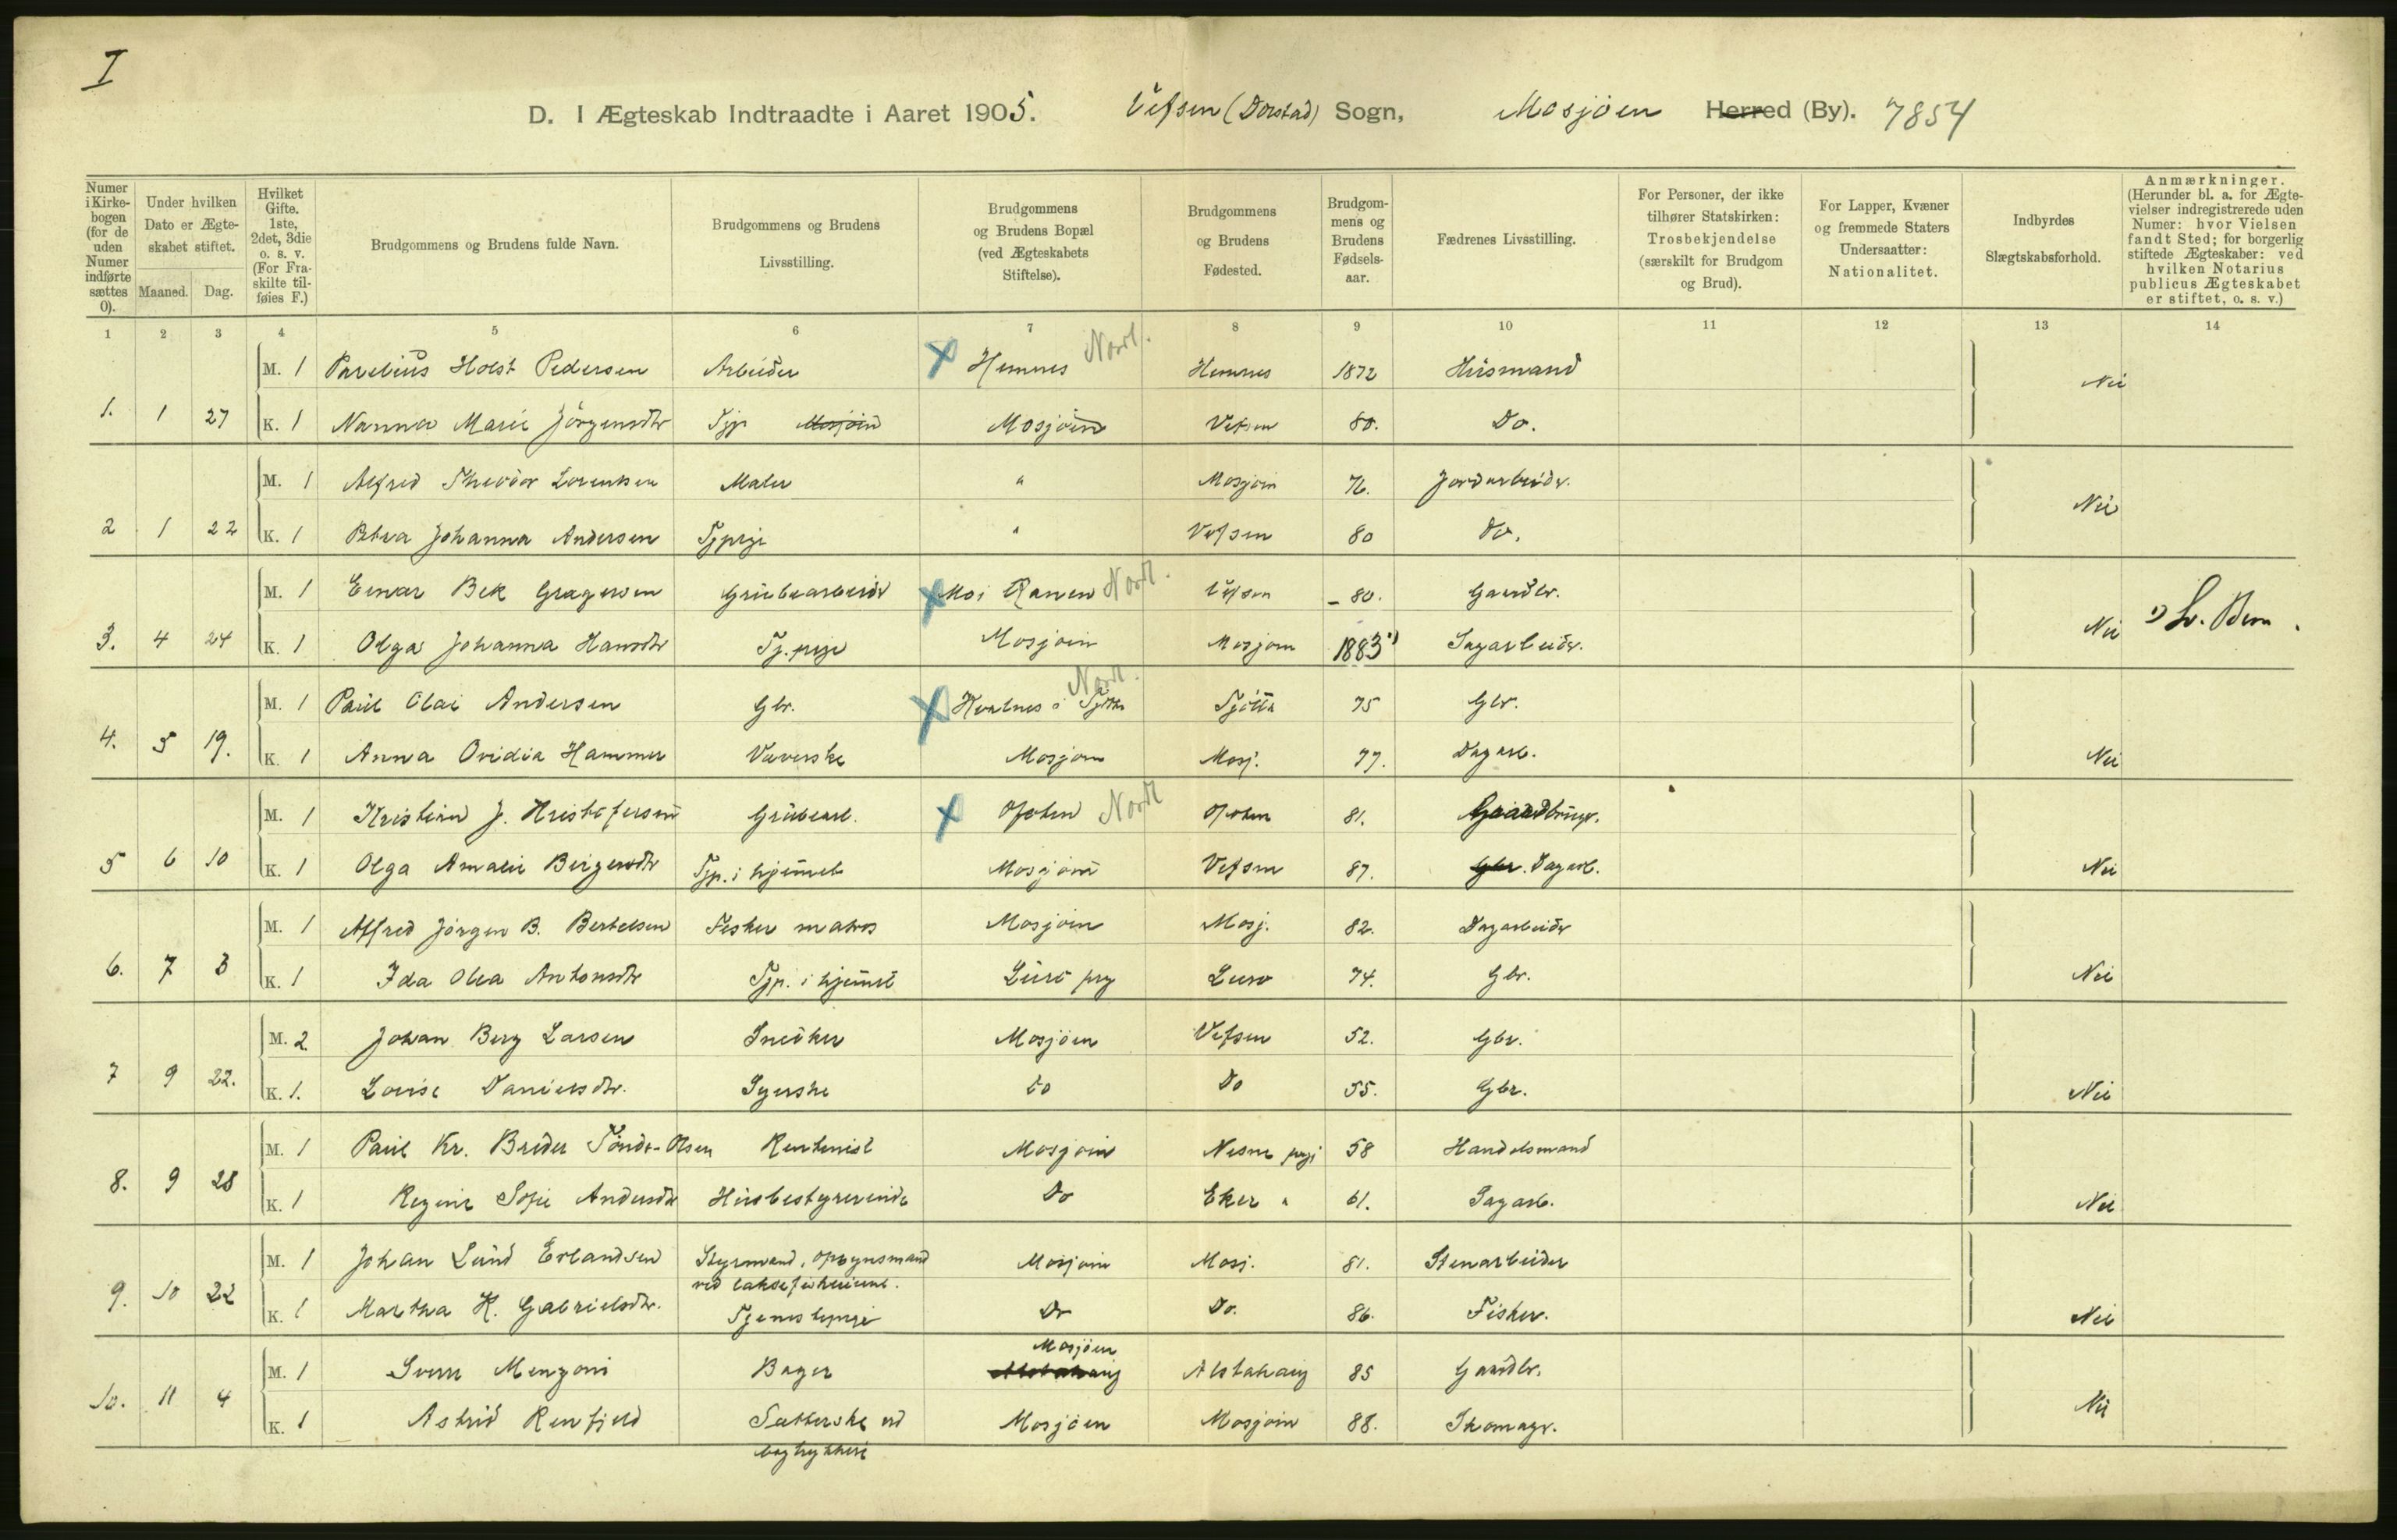 I
D. I Ægteskab Indtraadte i Aaret 1905. Vefsen (Dolstad) Sogn, Mosjöen Herred (By). 7854
Numer i Kirkebogen (for de uden Numer indførte sættes 0).
Under hvilken Dato er Ægteskabet stiftet.
Maaned. Dag.
Hvilket Gifte. 1ste, 2det, 3die o. s. v. (For Fraskilte tilføies F.)
Brudgommens og Brudens fulde Navn.
Brudgommens og Brudens Livsstilling.
Brudgommens og Brudens Bopæl (ved Ægteskabets Stiftelse).
Brudgommens og Brudens Fødested.
Brudgommens og Brudens Fødselsaar.
Fædrenes Livsstilling.
For Personer, der ikke tilhører Statskirken: Trosbekjendelse (særskilt for Brudgom og Brud).
For Lapper, Kvæner og fremmede Staters Undersaatter: Nationalitet.
Indbyrdes Slægtskabsforhold.
Anmærkninger. (Herunder bl. a. for Ægtevielser indregistrerede uden Numer: hvor Vielsen fandt Sted; for borgerlig stiftede Ægteskaber: ved hvilken Notarius publicus Ægteskabet er stiftet, o. s. v.)
1 2 3 4 5 6 7 8 9 10 11 12 13 14
M. 1 Parelius Holst Pedersen Arbeider X Hemnes Nordl. Hemnes 1872 Husmand Nei
1. 1 27 K. 1 Nanna Marie Jörgensdtr Tjp Mosjöen Mosjöen Vefsen 80. Do.
M. 1 Alfred Theodor Lorentsen Maler " Mosjöen 76. Jordarbeider. Nei
2 1 22 K. 1 Petra Johanna Andersen Tjpige " Vefsen 80 Do.
M. 1 Einar Bek Gragersen Grubearbeider X Mo i Ranen Nordl. Vefsen - 80. Gaardbr.
3. 4 24 K. 1 Olga Johanna Hansdtr Tj. pige Mosjöen Mosjöen 1883 1) Sagarbeider. Nei 1)
M. 1 Paul Olai Andersen Gbr. X Hvalnes i Tjötta Nordl. Tjötta 75 Gbr.
4. 5 19. K. 1 Anna Ovidia Hammer Væverske Mosjöen Mosj. 77. Dagarb. Nei
M. 1 Kristian J. Kristofersen Grubearb. X Ofoten Nordl Ofoten 81. Gaardbruger.
5 6 10 K. 1 Olga Amalie Birgersdtr Tjp. i hjemmet Mosjöen Vefsen 87. Gbr. Dagarb. Nei
M. 1 Alfred Jörgen B. Bertelsen Fisker matros Mosjöen Mosj. 82. Dagarbeider
6. 7 3 K. 1 Ida Olea Antonsdtr Tjp. i hjemmet Lurö prg Lurö 74. Gbr. Nei
M. 2 Johan Berg Larsen Snedker Mosjöen Vefsen 52. Gbr.
7 9 22. K. 1. Lovise Danielsdtr. Syerske Do Do 55. Gbr. Nei
M. 1 Paul Kr. Breder Tönder-Olsen Rentenist Mosjöen Nesne prgj 58 Handelsmand
8. 9 28 K. 1 Regine Sofie Andersdtr Husbestyrerinde Do Eker " 61. Sagarb. Nei
M. 1 Johan Lund Erlandsen Styrmand, opsynsmand Mosjöen Mosj. 81. Stenarbeider
ved laksefiskeriene.
9. 10 22 K. 1 Martha K. Gabrielsdtr. Tjenestepige Do Do. 86. Fisker. Nei
Mosjöen
M. 1 Sverre Menzoni Bager Alstahaug Alstahaug 85 Gaardbr.
10. 11 4 K. 1 Astrid Renfjeld Sætterske ved Mosjöen Mosjöen 88. Skomager. Nei
bogtrykkeri